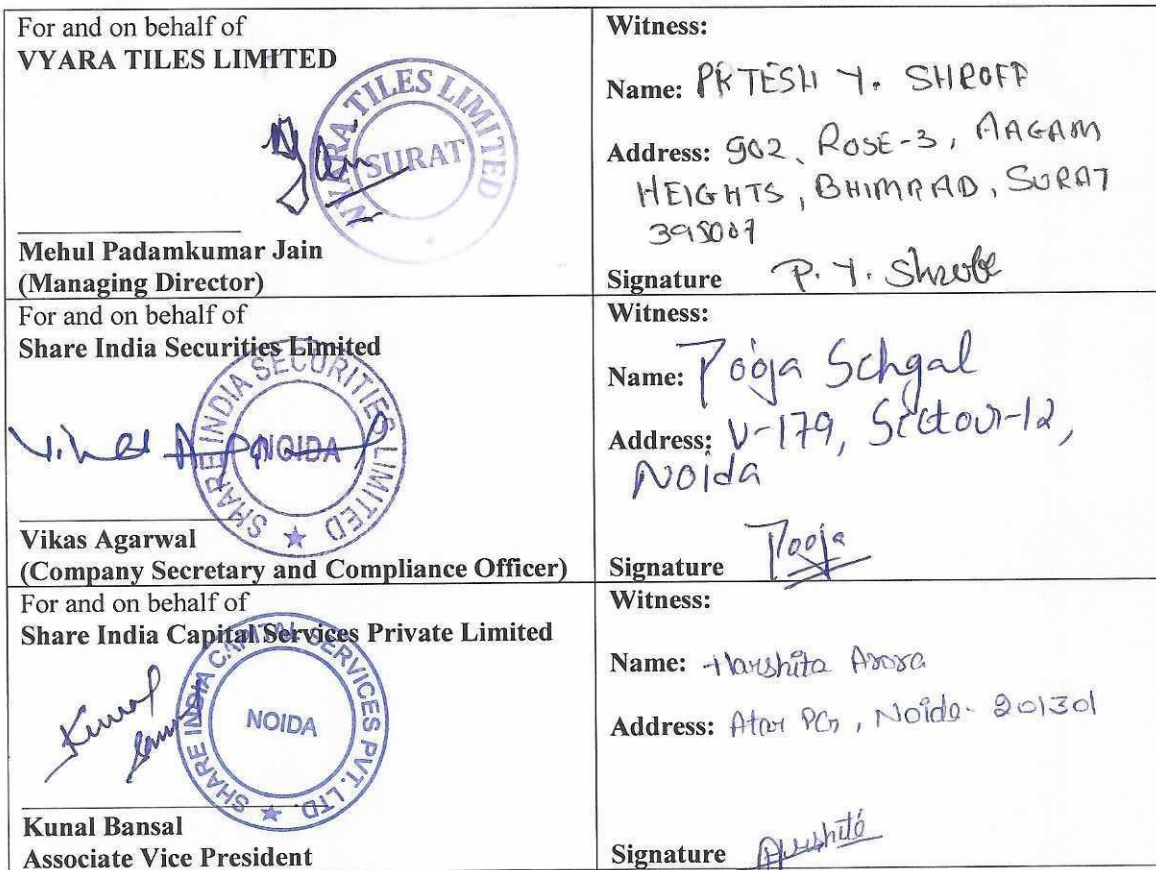 For and on behalf of
VYARA TILES LIMITED
VYARA TILES LIMITED
SURAT
Mehul Padamkumar Jain
(Managing Director)
Witness:
Name: PRTESH Y. SHROFF
Address: 902, ROSE-3, AAGAM
HEIGHTS, BHIMRAD, SURAT
395007
Signature P. Y. Shroff
For and on behalf of
Share India Securities Limited
SHARE INDIA SECURITIES LIMITED
NOIDA
Vikas Agarwal
Vikas Agarwal
(Company Secretary and Compliance Officer)
Witness:
Name: Pooja Sehgal
Address: V-179, Sector-12,
Noida
Signature Pooja
For and on behalf of
Share India Capital Services Private Limited
SHARE INDIA CAPITAL SERVICES PVT. LTD.
NOIDA
Kunal
Kunal Bansal
Associate Vice President
Witness:
Name: Harshita Arora
Address: Atar PG, Noida- 201301
Signature Harshita